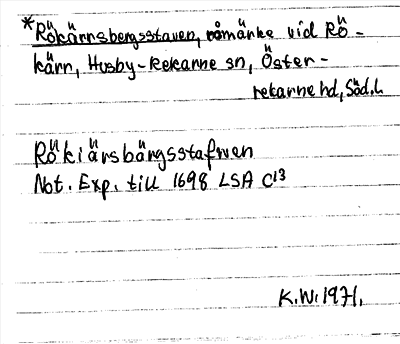 *Rökärnsbergsstaven, råmärke vid Rö-
kärn, Husby-Rekarne sn, Öster-
rekarne hd, Söd.l.
Rökiärsbärgsstafwen
Not. Exp. till 1698 LSA C13
K.W. 1971.